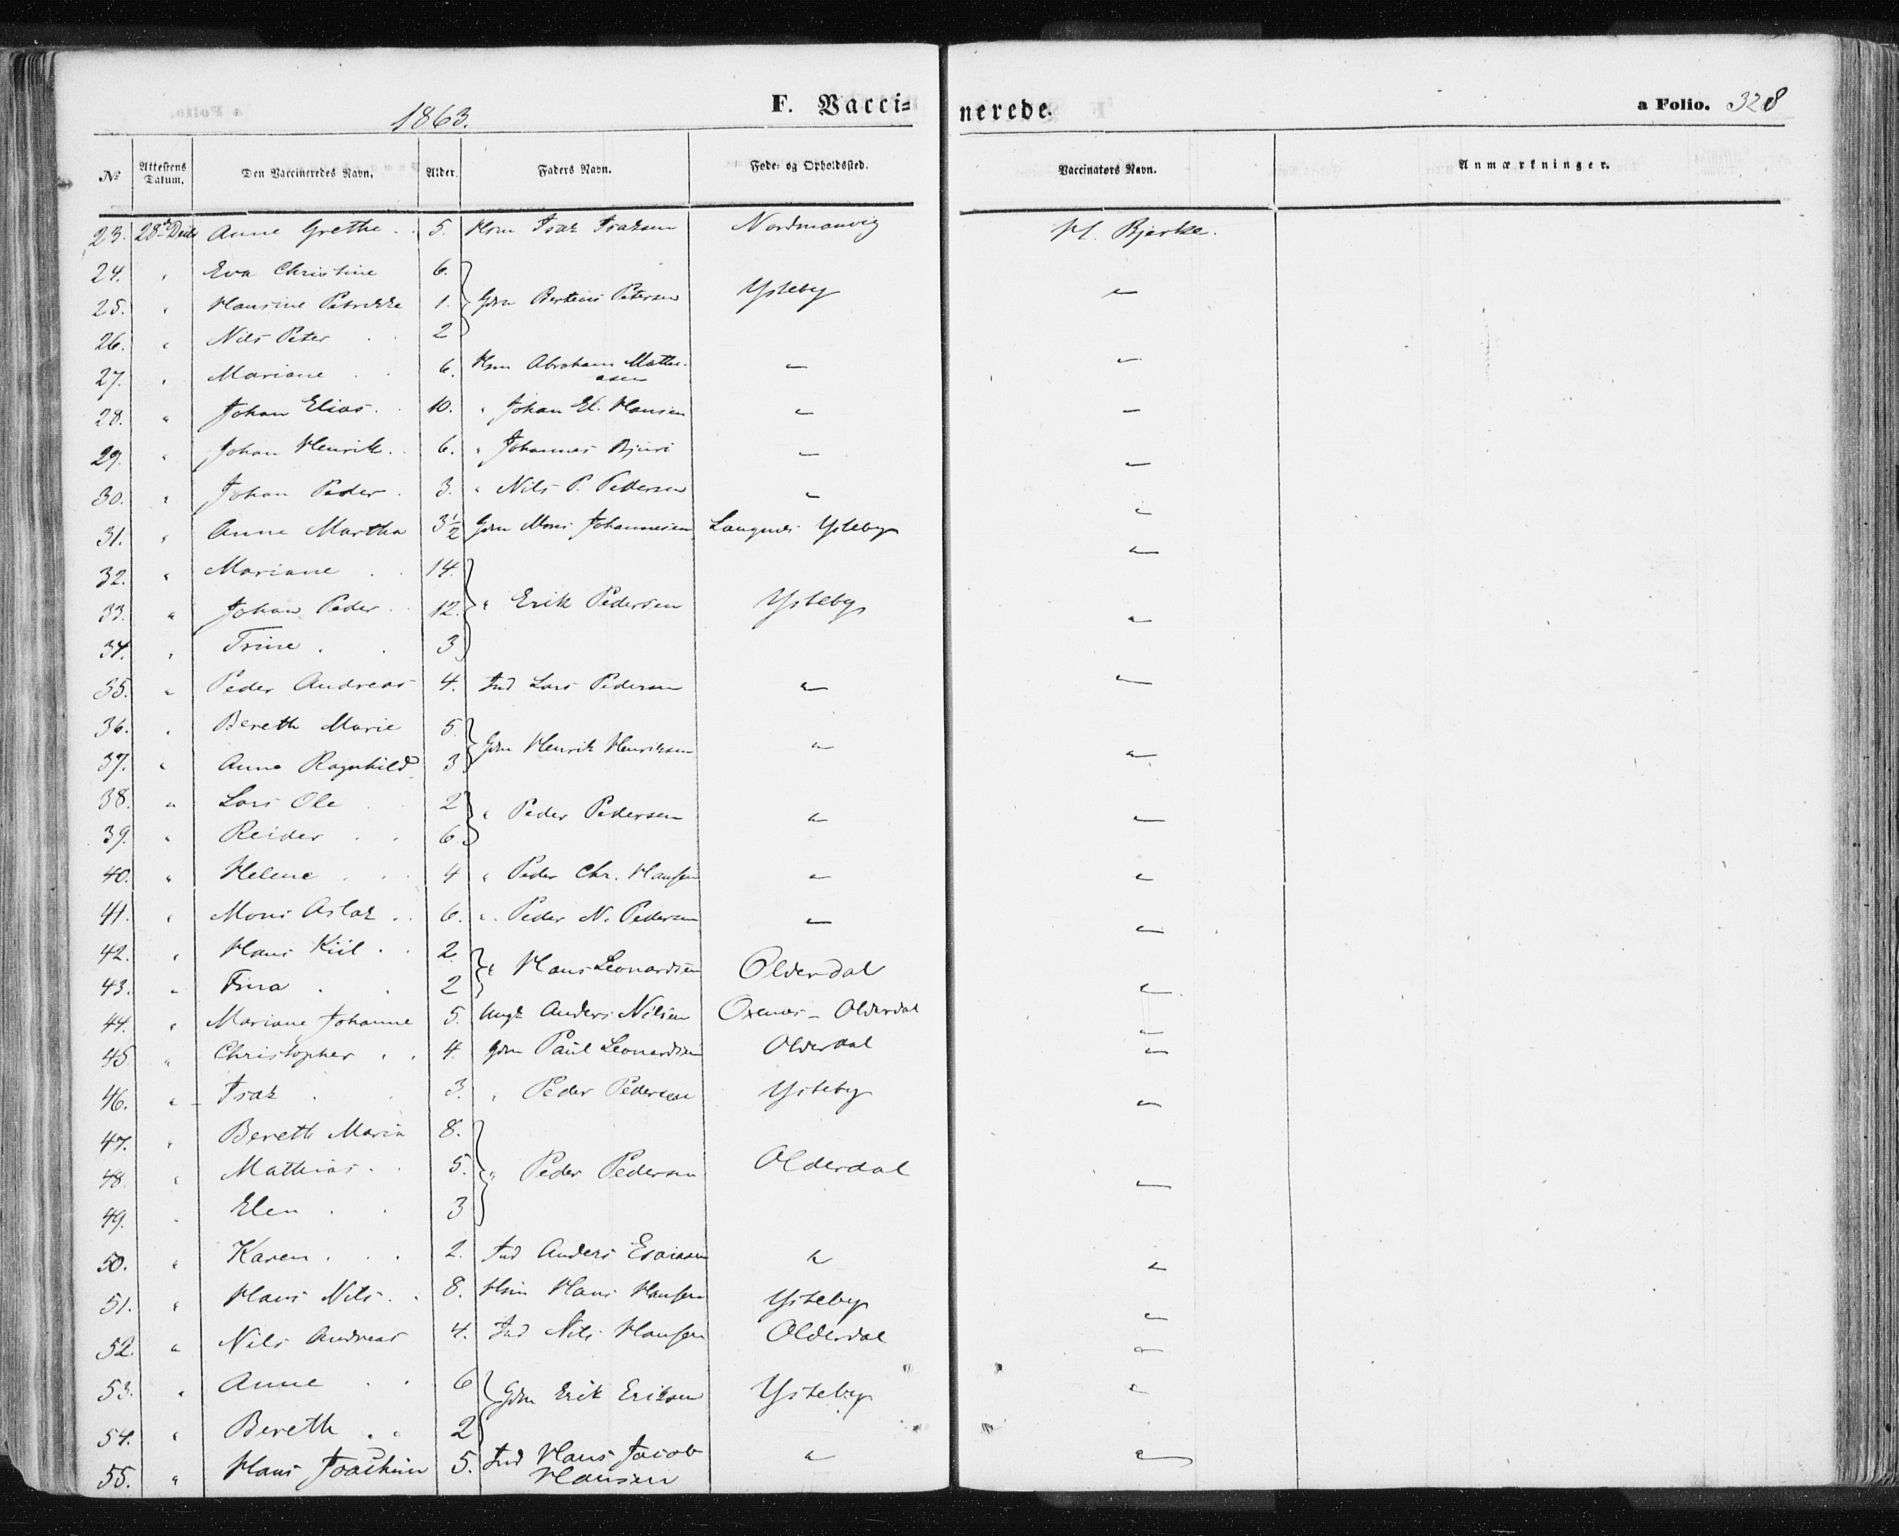 1863.
F. Vacci=
nerede.
a Folio. 328
№ Attestens Datum. Den Vaccineredes Navn. Alder. Faders Navn. Føde- og Opholdssted. Vaccinators Navn. Anmærkninger.
23. 28de Anne Grethe 5. Hsm Isak Isaksen Nordmanvig H. Bjerke.
24. " Eva Christine 6.
25. " Hansine Petrikke 1. Gdm Bertinus Petersen Ysteby "
26. " Nils Peter 2
27. " Mariane 6. Hsm Abraham Matti- " "
asen
28. " Johan Elias 10. " Johan El. Hansen " "
29. " Johan Henrik 6. " Johannes " "
30. " Johan Peder 3. " Nils P. Pedersen " "
31. " Anne Martha 3½ Gdm Mons Johannesen Langnes Ysteby "
32. " Mariane 14.
33. " Johan Peder 12. " Erik Pedersen Ysteby "
34. " Trine 3
35. " Peder Andreas 4. Ind Lars Pedersen " "
36. " Bereth Marie 5.
Gdm Henrik Henriksen " "
37. " Anne Ragnhild 3
38. " Lars Ole 2
" Peder Pedersen " "
39. " Reider 6.
40. " Helene 4 " Peder Chr. Hansen " "
41. " Mons Aslak 6. " Peder N. Pedersen " "
42. " Hans Kiil 2.
" Hans Leonardsen Olderdal
43. " Trina 2 "
44. " Mariane Johanne 5. Ungk Anders Nilsen Oxenes - Olderdal "
45. " Christopher 4. Gdm Paul Leonardsen Olderdal "
46. " Isak 3. " Peder Pedersen Ysteby "
47. " Bereth Maria 8.
48. " Mathias 5. " Peder Pedersen Olderdal "
49. " Elen 3
50. " Karen 2. Ind Anders Esaiasen " "
51. " Hans Nils 8. Hsm Hans Hansen Ysteby "
52. " Nils Andreas 4. Ind Nils Hansen Olderdal "
53. " Anne 6 Gdm Erik Eriksen Ysteby "
54. " Bereth 2
55. " Hans Joachim 5. Ind Hans Jacob " "
Hansen